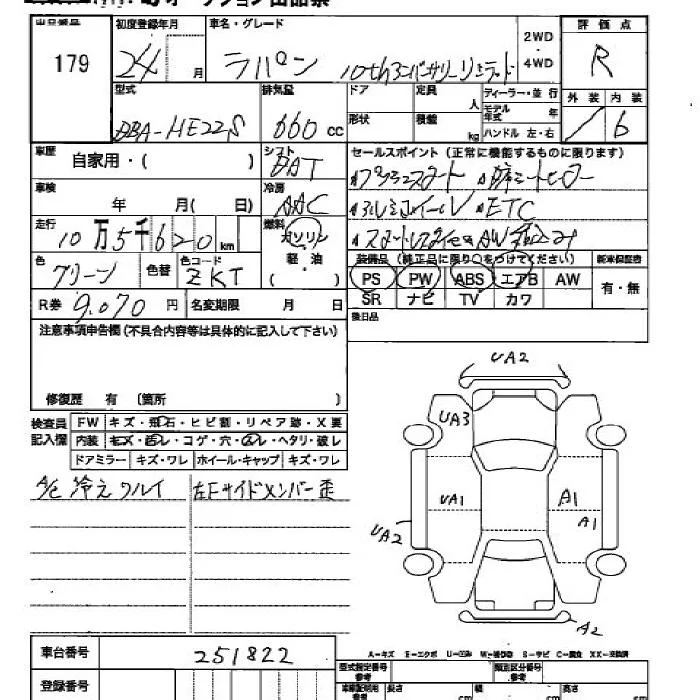 出品番号 初度登録年月 車名・グレード 2WD 評価点
179 24 月 ラパン 10thアニバーサリーリミテッド ・ 4WD R
型式 排気量 ドア 定員 人 ディーラー・並行 外装 内装
DBA-HE22S 660 cc 形状 積載 kg モデル年式 年 ハンドル 左・右 6
車歴 自家用・( ) シフト DAT セールスポイント(正常に機能するものに限ります)
プッシュスタート シートヒーター
車検 年 月( 日) 冷房 AAC アルミホイール ETC
走行 10万5千620km 燃料 ガソリン
軽・油 ( ) 装備品(純正品に限り○をつけてください) 新車保証書
色 グリーン 色替 色コード ZKT PS PW ABS エアB AW 有・無
R券 9,070 円 名変期限 月 日 SR ナビ TV カワ
注意事項申告欄(不具合内容等は具体的に記入して下さい) 後日品
修復歴 有 〔箇所 〕
検査員記入欄 FW キズ・飛石・ヒビ割・リペア跡・X要
内装 キズ・汚レ・コゲ・穴・スレ・ヘタリ・破レ
ドアミラー キズ・ワレ ホイール・キャップ キズ・ワレ
A/C 冷えワルイ 左Fサイドメンバー歪
UA2
UA3
UA1 A1
A1
UA2
A2
車台番号 251822
A-キズ E-エクボ U-凹み W-補修跡 S-サビ C-腐食 XX-交換済
登録番号 型式指定番号 参考 類別区分番号 参考
車庫証明用 参考 長さ cm 幅 cm 高さ cm